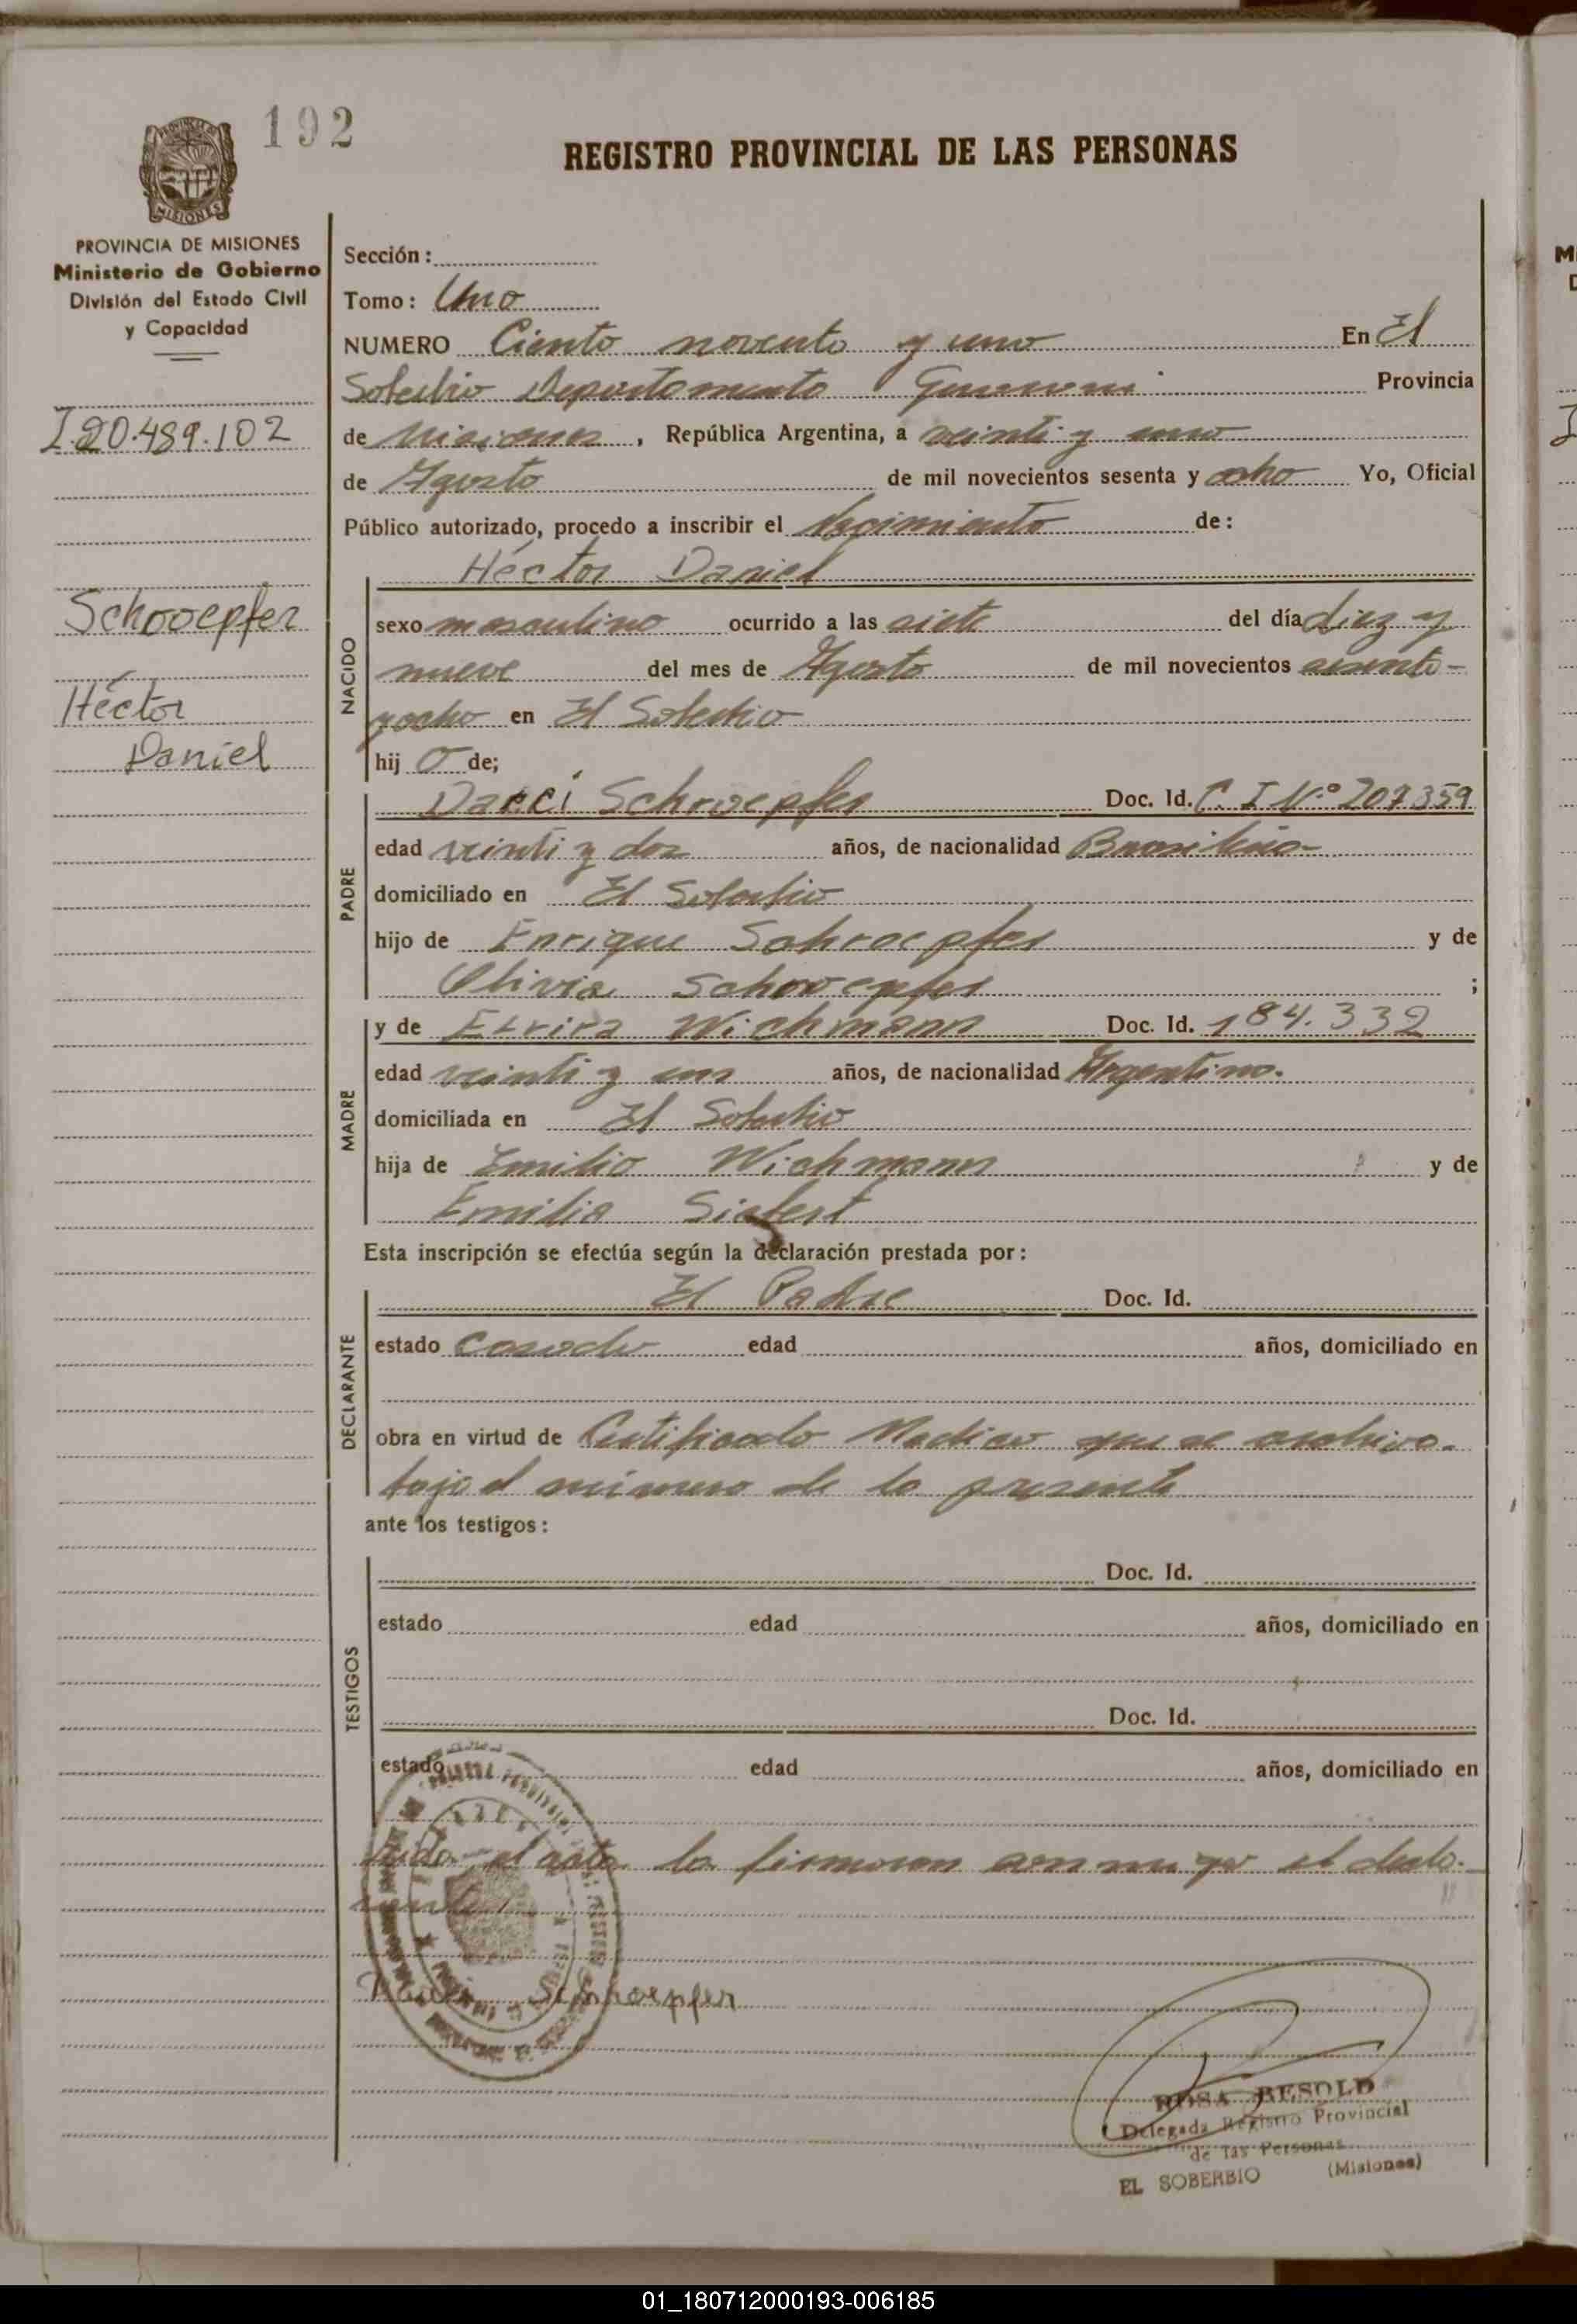 192
REGISTRO PROVINCIAL DE LAS PERSONAS
MISIONES
PROVINCIA DE MISIONES
Ministerio de Gobierno
División del Estado Civil
y Capacidad
I.20.489.102
Schooepfer
Héctor
Daniel
Sección:
Tomo: Uno
NUMERO Ciento noventa y uno En El
Soberbio Departamento Guarani Provincia
de Misiones, República Argentina, a veinti y uno
de Agosto de mil novecientos sesenta y ocho Yo, Oficial
Público autorizado, procedo a inscribir el Nacimiento de:
Héctor Daniel
NACIDO
sexo masculino ocurrido a las siete del día diez y
nueve del mes de Agosto de mil novecientos sesenta-
yocho en El Soberbio
hij o de;
PADRE
Darci Schroepfer Doc. Id. C. I Nº 207359
edad veinti y dos años, de nacionalidad Brasileña-
domiciliado en El Soberbio
hijo de Enrique Schroepfer y de
Olivia Schooepfer ;
MADRE
y de Wichmann Doc. Id. 184.332
edad veinti y un años, de nacionalidad Argentina.
domiciliada en El Soberbio
hija de Emilio Wichmann y de
Emilia Siefert
Esta inscripción se efectúa según la declaración prestada por:
DECLARANTE
El Padre Doc. Id.
estado casado edad años, domiciliado en
obra en virtud de Certificado Medico que se archiva.
bajo el número de la presente
ante los testigos:
TESTIGOS
Doc. Id.
estado edad años, domiciliado en
Doc. Id.
estado edad años, domiciliado en
Leida el acta la firmaron conmigo el decla-
rante
Schoepfer
ROSA BESOLD
Delegada Registro Provincial
de las Personas
EL SOBERBIO (Misiones)
01_180712000193-006185